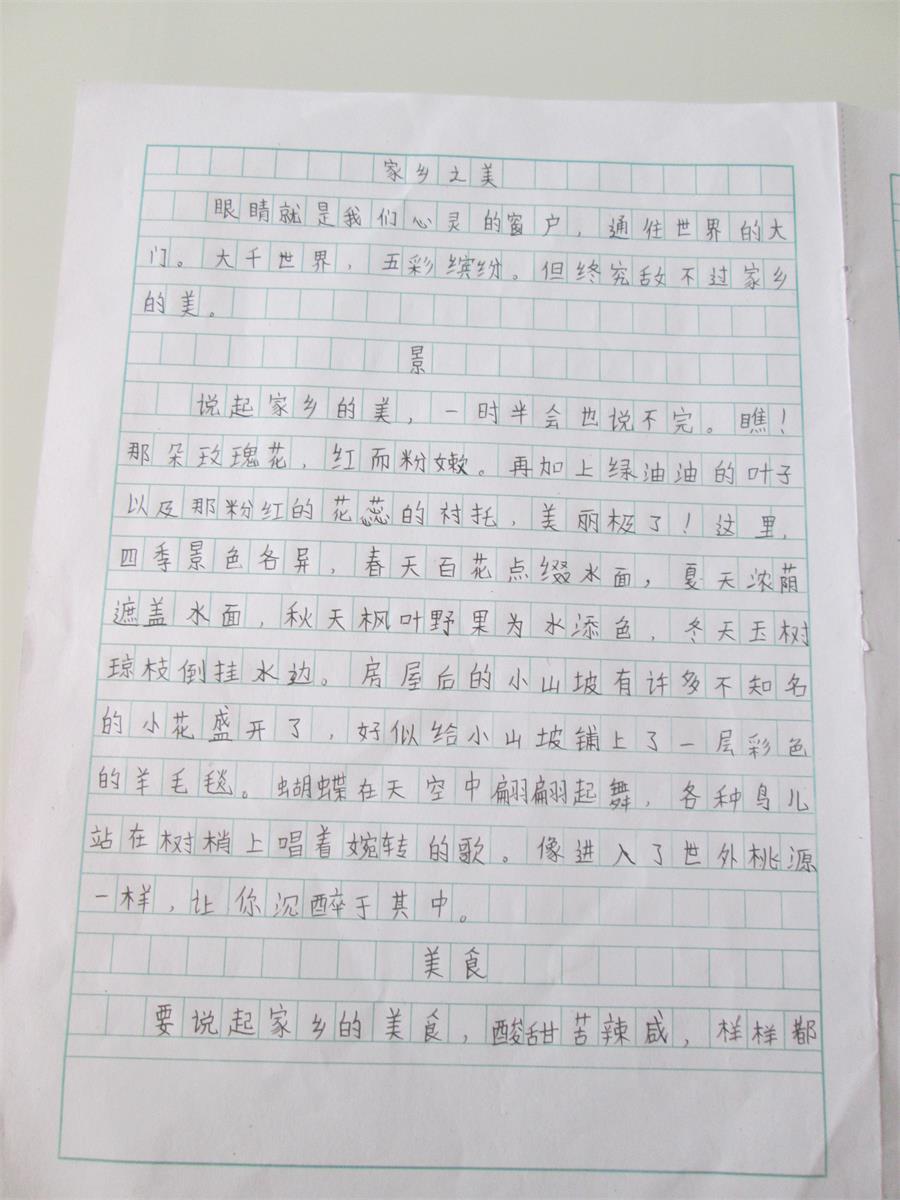 家乡之美
眼睛就是我们心灵的窗户，通往世界的大
门。大千世界，五彩缤纷。但终究敌不过家乡
的美。
景
说起家乡的美，一时半会也说不完。瞧！
那朵玫瑰花，红而粉嫩。再加上绿油油的叶子
以及那粉红的花蕊的衬托，美丽极了！这里，
四季景色各异，春天百花点缀水面，夏天浓荫
遮盖水面，秋天枫叶野果为水添色，冬天玉树
琼枝倒挂水边。房屋后的小山坡有许多不知名
的小花盛开了，好似给小山坡铺上了一层彩色
的羊毛毯。蝴蝶在天空中翩翩起舞，各种鸟儿
站在树梢上唱着婉转的歌。像进入了世外桃源
一样，让你沉醉于其中。
美食
要说起家乡的美食，酸甜苦辣咸，样样都